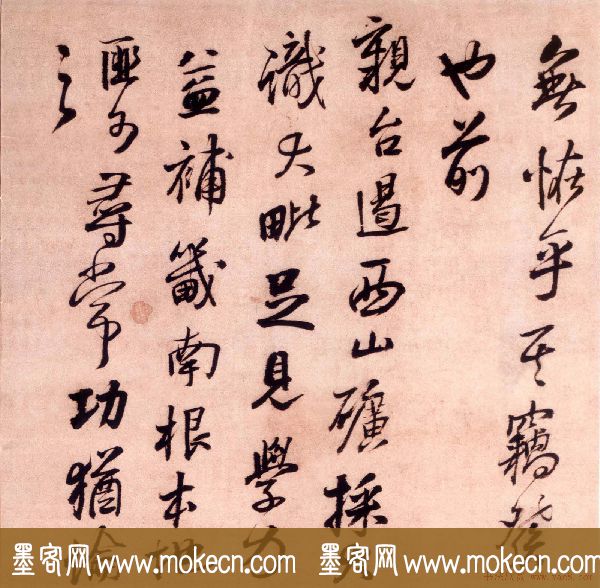 無恠乎其竊發
也前
親台過西山礦採
識大毗足見學力
益補畿南根本地
匪可尋常功猶論
之
墨客网 www.mokecn.com 墨客网 www.mokecn.com